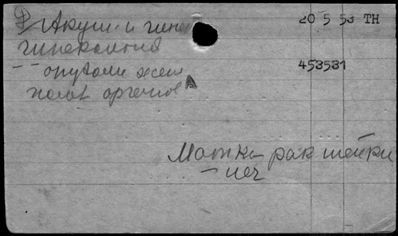 Акуш. и гине
гинекология
-- опухоли жен
полов органов
20 5 53 TH
453531
Матка рак шейки
- леч